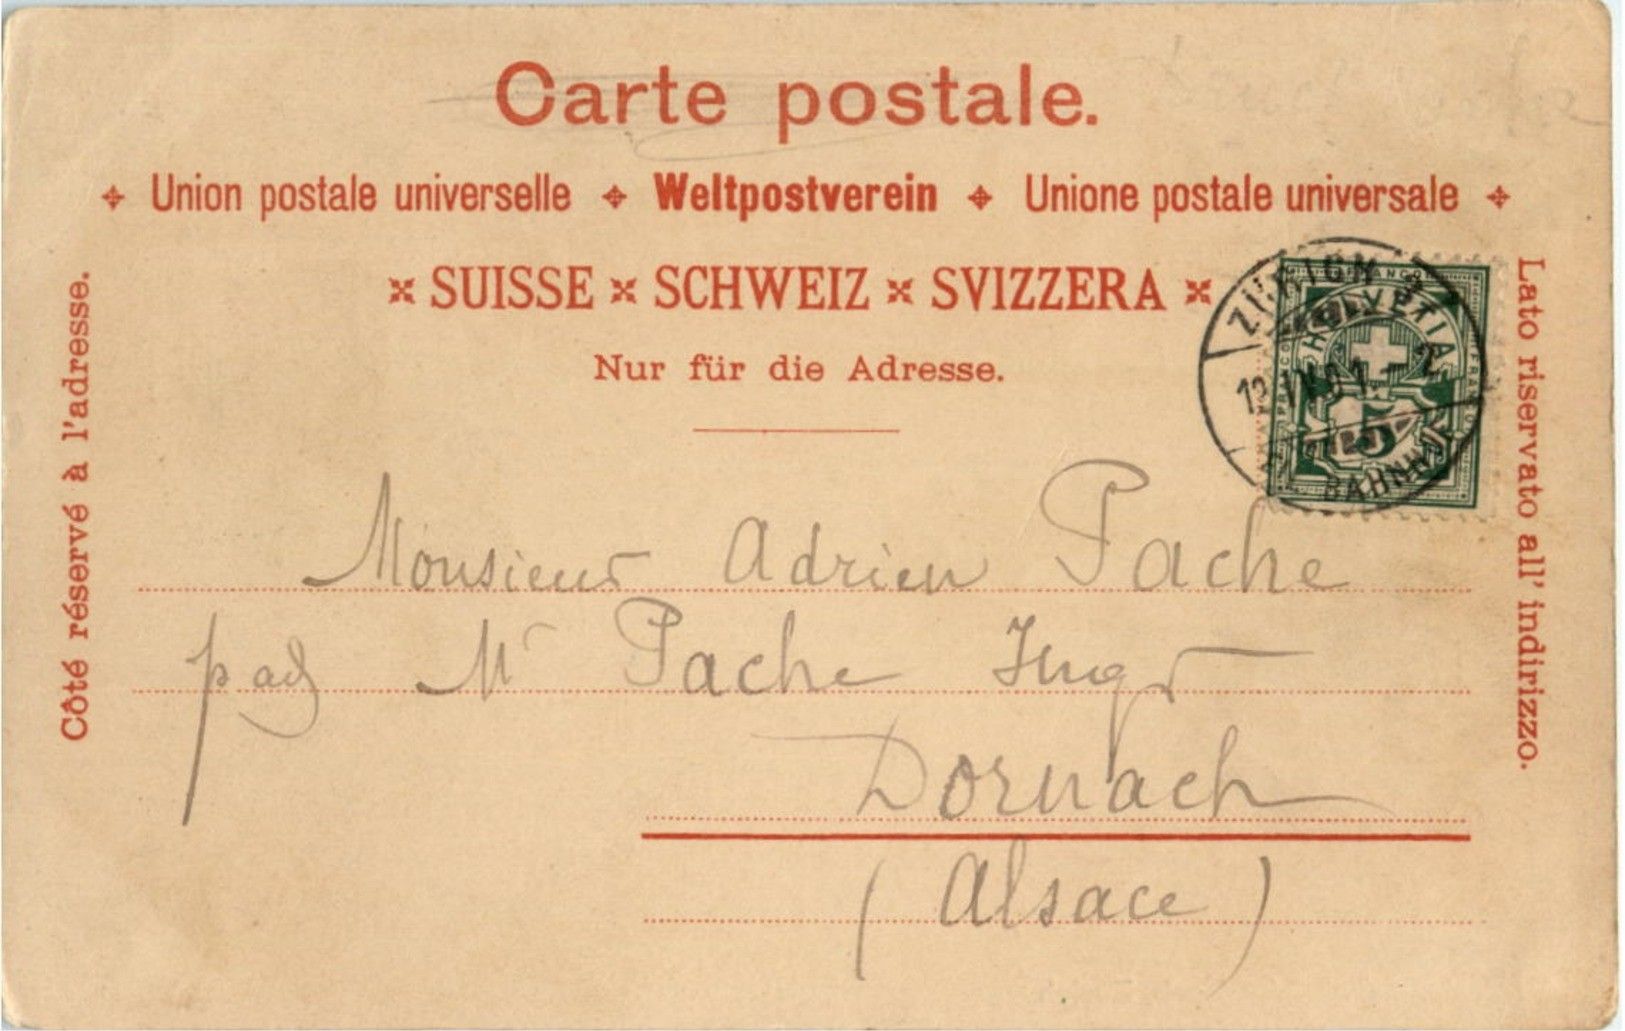 Carte postale.
Union postale universelle Weltpostverein Unione postale universale
SUISSE SCHWEIZ SVIZZERA
Nur für die Adresse.
Côté réservé à l'adresse.
Lato riservato all' indirizzo.
ZÜRICH
HELVETIA
FRANCO
5
BAHNH
Monsieur Adrien Pache
pad Mr Pache Ingr
Dornach
(Alsace)